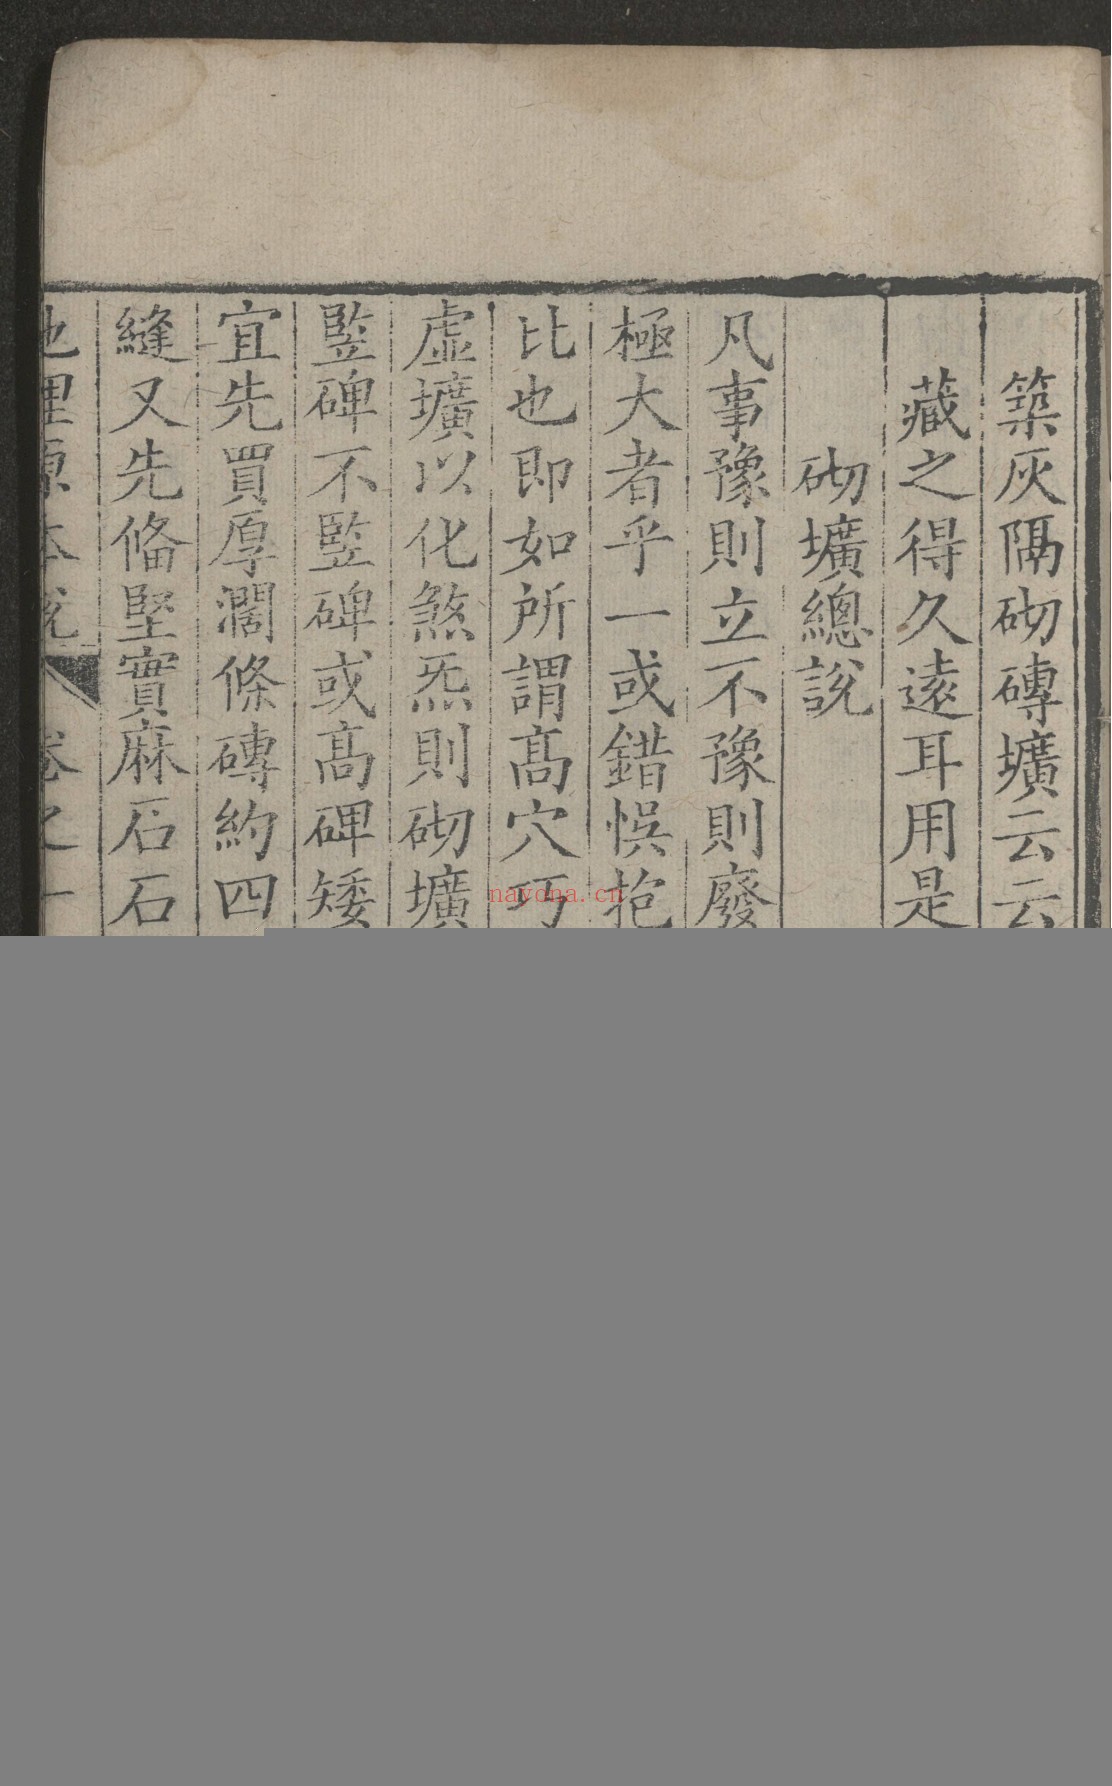 築灰隔砌磚壙云云
藏之得久遠耳用是
砌壙總説
凡事豫則立不豫則廢
極大者乎一或錯悮抱
比也即如所謂髙穴巧
虛壙以化煞炁則砌壙
竪碑不竪碑或髙碑矮
宜先買厚濶條磚約四
縫又先俻堅實麻石石
地理原本説 卷之
nayona.cn